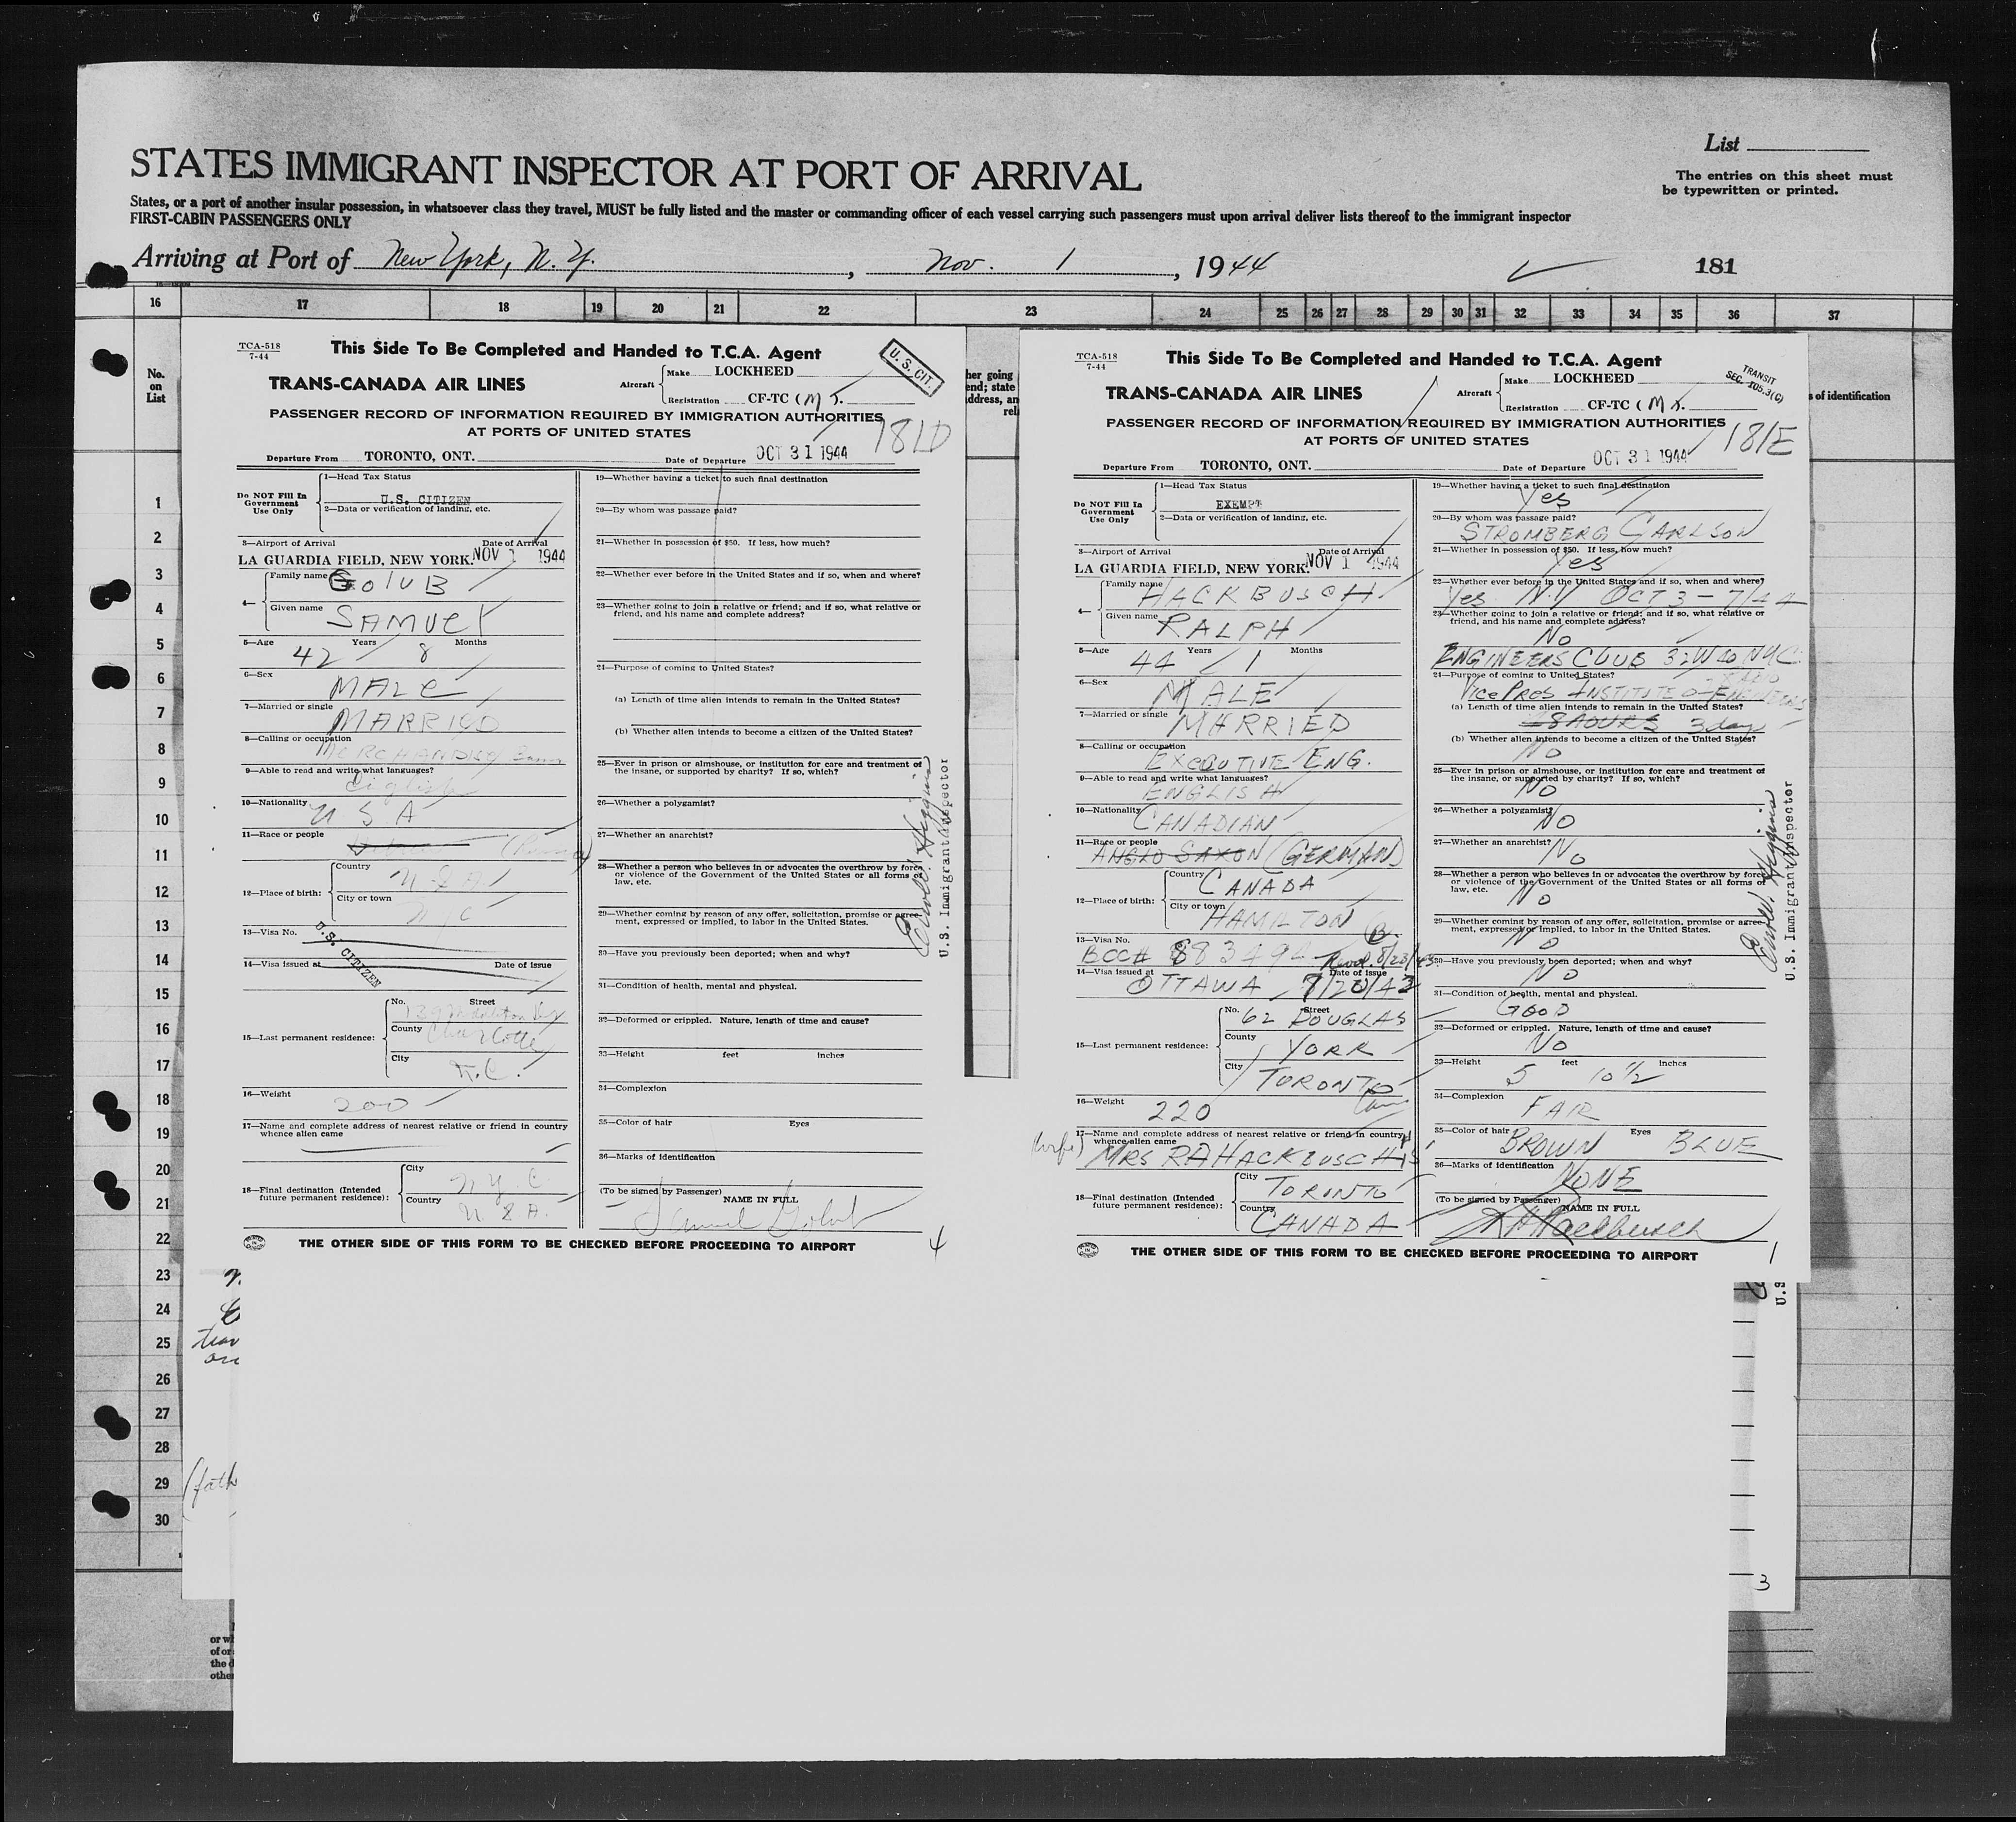 STATES IMMIGRANT INSPECTOR AT PORT OF ARRIVAL
List
The entries on this sheet must
be typewritten or printed.
States, or a port of another insular possession, in whatsoever class they travel, MUST be fully listed and the master or commanding officer of each vessel carrying such passengers must upon arrival deliver lists thereof to the immigrant inspector
FIRST-CABIN PASSENGERS ONLY
Arriving at Port of New York, N.Y., Nov. 1, 1944
181
16 17 18 19 20 21 22 23 24 25 26 27 28 29 30 31 32 33 34 35 36 37
No.
on
List
1
2
3
4
5
6
7
8
9
10
11
12
13
14
15
16
17
18
19
20
21
22
23
24
25
26
27
28
29
30
TCA-518
7-44
This Side To Be Completed and Handed to T.C.A. Agent
U.S. CIT.
TRANS-CANADA AIR LINES
Aircraft
Make LOCKHEED
Registration CF-TC (M T.
PASSENGER RECORD OF INFORMATION REQUIRED BY IMMIGRATION AUTHORITIES
AT PORTS OF UNITED STATES
181D
Departure From TORONTO, ONT. Date of Departure OCT 31 1944
Do NOT Fill In
Government
Use Only
1—Head Tax Status
U.S. CITIZEN
2—Data or verification of landing, etc.
3—Airport of Arrival Date of Arrival
LA GUARDIA FIELD, NEW YORK. NOV 1 1944
4—
Family name GOLUB
Given name SAMUEL
5—Age 42 Years 8 Months
6—Sex
MALE
7—Married or single
MARRIED
8—Calling or occupation
9—Able to read and write what languages?
English
10—Nationality
U S A
11—Race or people
12—Place of birth:
Country
U.S.A.
City or town
13—Visa No.
U.S. CITIZEN
14—Visa issued at Date of issue
15—Last permanent residence:
No. Street
County
Charlotte
City
N.C.
16—Weight
200
17—Name and complete address of nearest relative or friend in country
whence alien came
18—Final destination (Intended
future permanent residence):
City
N.Y.C
Country
U.S.A.
19—Whether having a ticket to such final destination
20—By whom was passage paid?
21—Whether in possession of $50. If less, how much?
22—Whether ever before in the United States and if so, when and where?
23—Whether going to join a relative or friend; and if so, what relative or
friend, and his name and complete address?
24—Purpose of coming to United States?
(a) Length of time alien intends to remain in the United States?
(b) Whether alien intends to become a citizen of the United States?
25—Ever in prison or almshouse, or institution for care and treatment of
the insane, or supported by charity? If so, which?
26—Whether a polygamist?
27—Whether an anarchist?
28—Whether a person who believes in or advocates the overthrow by force
or violence of the Government of the United States or all forms of
law, etc.
29—Whether coming by reason of any offer, solicitation, promise or agree-
ment, expressed or implied, to labor in the United States.
30—Have you previously been deported; when and why?
31—Condition of health, mental and physical.
32—Deformed or crippled. Nature, length of time and cause?
33—Height feet inches
34—Complexion
35—Color of hair Eyes
36—Marks of identification
(To be signed by Passenger) NAME IN FULL
Samuel Golub
U.S. Immigrant Inspector
THE OTHER SIDE OF THIS FORM TO BE CHECKED BEFORE PROCEEDING TO AIRPORT
4
her going
end; state
ddress, an
rel
TCA-518
7-44
This Side To Be Completed and Handed to T.C.A. Agent
TRANSIT
SEC. 105.3(C)
TRANS-CANADA AIR LINES
Aircraft
Make LOCKHEED
Registration CF-TC (M T.
PASSENGER RECORD OF INFORMATION REQUIRED BY IMMIGRATION AUTHORITIES
AT PORTS OF UNITED STATES
181E
Departure From TORONTO, ONT. Date of Departure OCT 31 1944
Do NOT Fill In
Government
Use Only
1—Head Tax Status
EXEMPT
2—Data or verification of landing, etc.
3—Airport of Arrival Date of Arrival
LA GUARDIA FIELD, NEW YORK. NOV 1 1944
4—
Family name HACKBUSCH
Given name RALPH
5—Age 44 Years 1 Months
6—Sex
MALE
7—Married or single
MARRIED
8—Calling or occupation
EXECUTIVE ENG.
9—Able to read and write what languages?
ENGLISH
10—Nationality
CANADIAN
11—Race or people
ANGLO SAXON (GERMAN)
12—Place of birth:
Country
CANADA
City or town
HAMILTON
13—Visa No.
BCC#
14—Visa issued at Date of issue
OTTAWA 7/20/43
15—Last permanent residence:
No. Street
62 DOUGLAS
County
YORK
City
TORONTO
16—Weight
220
17—Name and complete address of nearest relative or friend in country
whence alien came
(wife) MRS RA HACKBUSCH
18—Final destination (Intended
future permanent residence):
City
TORONTO
Country
CANADA
19—Whether having a ticket to such final destination
Yes
20—By whom was passage paid?
STROMBERG CARLSON
21—Whether in possession of $50. If less, how much?
Yes
22—Whether ever before in the United States and if so, when and where?
Yes NY OCT 3-7/44
23—Whether going to join a relative or friend; and if so, what relative or
friend, and his name and complete address?
No
ENGINEERS CLUB 32 W 40 NYC
24—Purpose of coming to United States?
Vice Pres INSTITUTE OF RADIO ENGINEERS
(a) Length of time alien intends to remain in the United States?
48 HOURS 3 days
(b) Whether alien intends to become a citizen of the United States?
No
25—Ever in prison or almshouse, or institution for care and treatment of
the insane, or supported by charity? If so, which?
No
26—Whether a polygamist?
No
27—Whether an anarchist?
No
28—Whether a person who believes in or advocates the overthrow by force
or violence of the Government of the United States or all forms of
law, etc.
No
29—Whether coming by reason of any offer, solicitation, promise or agree-
ment, expressed or implied, to labor in the United States.
No
30—Have you previously been deported; when and why?
No
31—Condition of health, mental and physical.
GOOD
32—Deformed or crippled. Nature, length of time and cause?
No
33—Height 5 feet 10½ inches
34—Complexion
FAIR
35—Color of hair BROWN Eyes BLUE
36—Marks of identification
NONE
(To be signed by Passenger) NAME IN FULL
RA Hackbusch
U.S. Immigrant Inspector
THE OTHER SIDE OF THIS FORM TO BE CHECKED BEFORE PROCEEDING TO AIRPORT
1
s of identification
(fath
U.S
3
or wh
of or
the d
othe